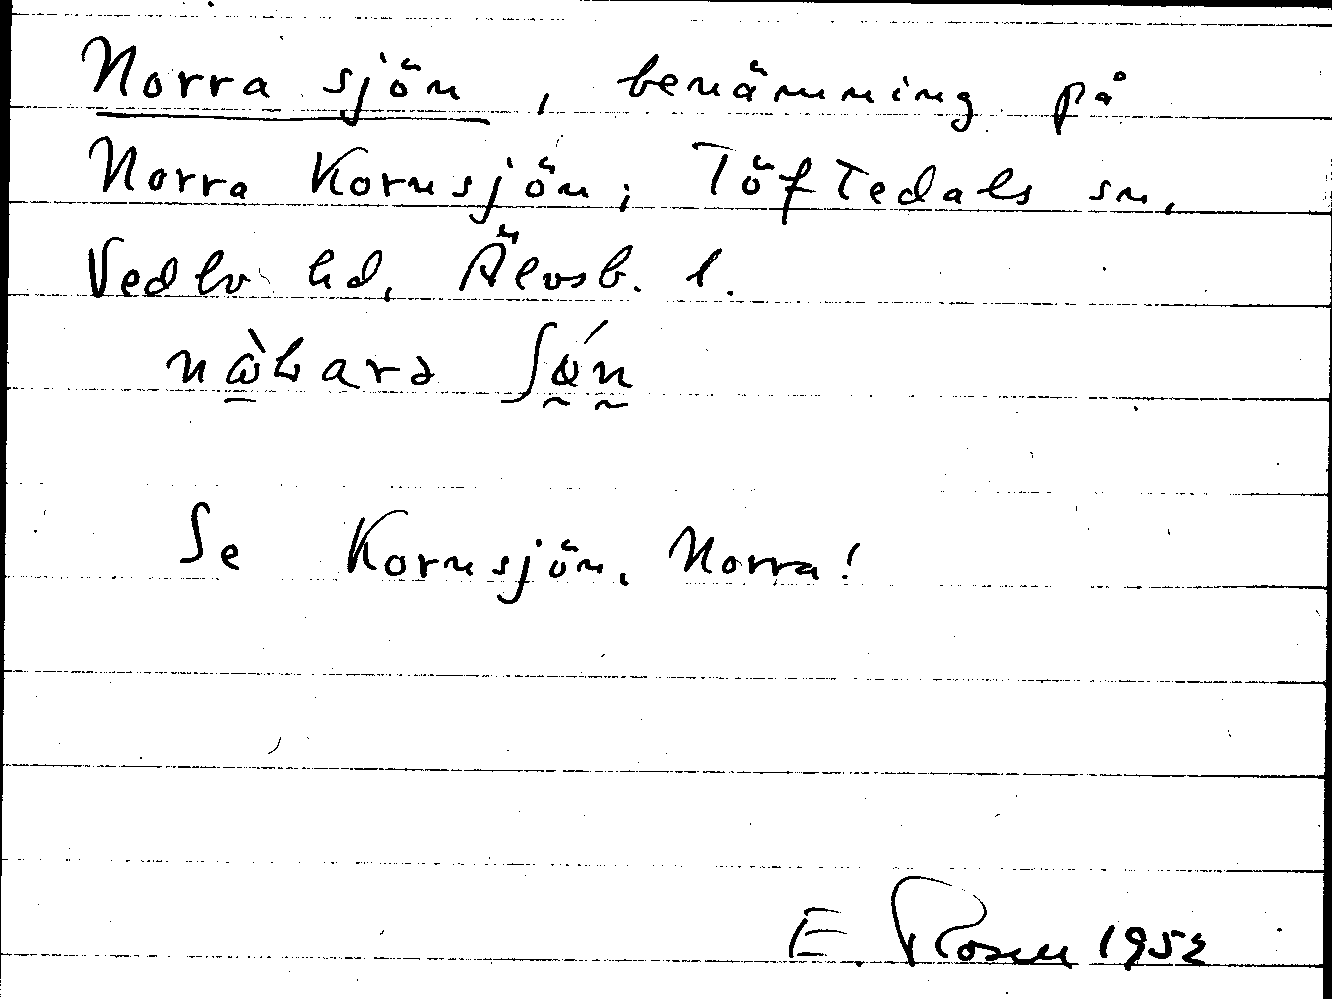 Norra sjön, benämning på
Norra Kornsjön; Töftedals sn,
Vedbo hd, Älvsb. l.
Se Kornsjön, Norra!
E. Rosen 1952